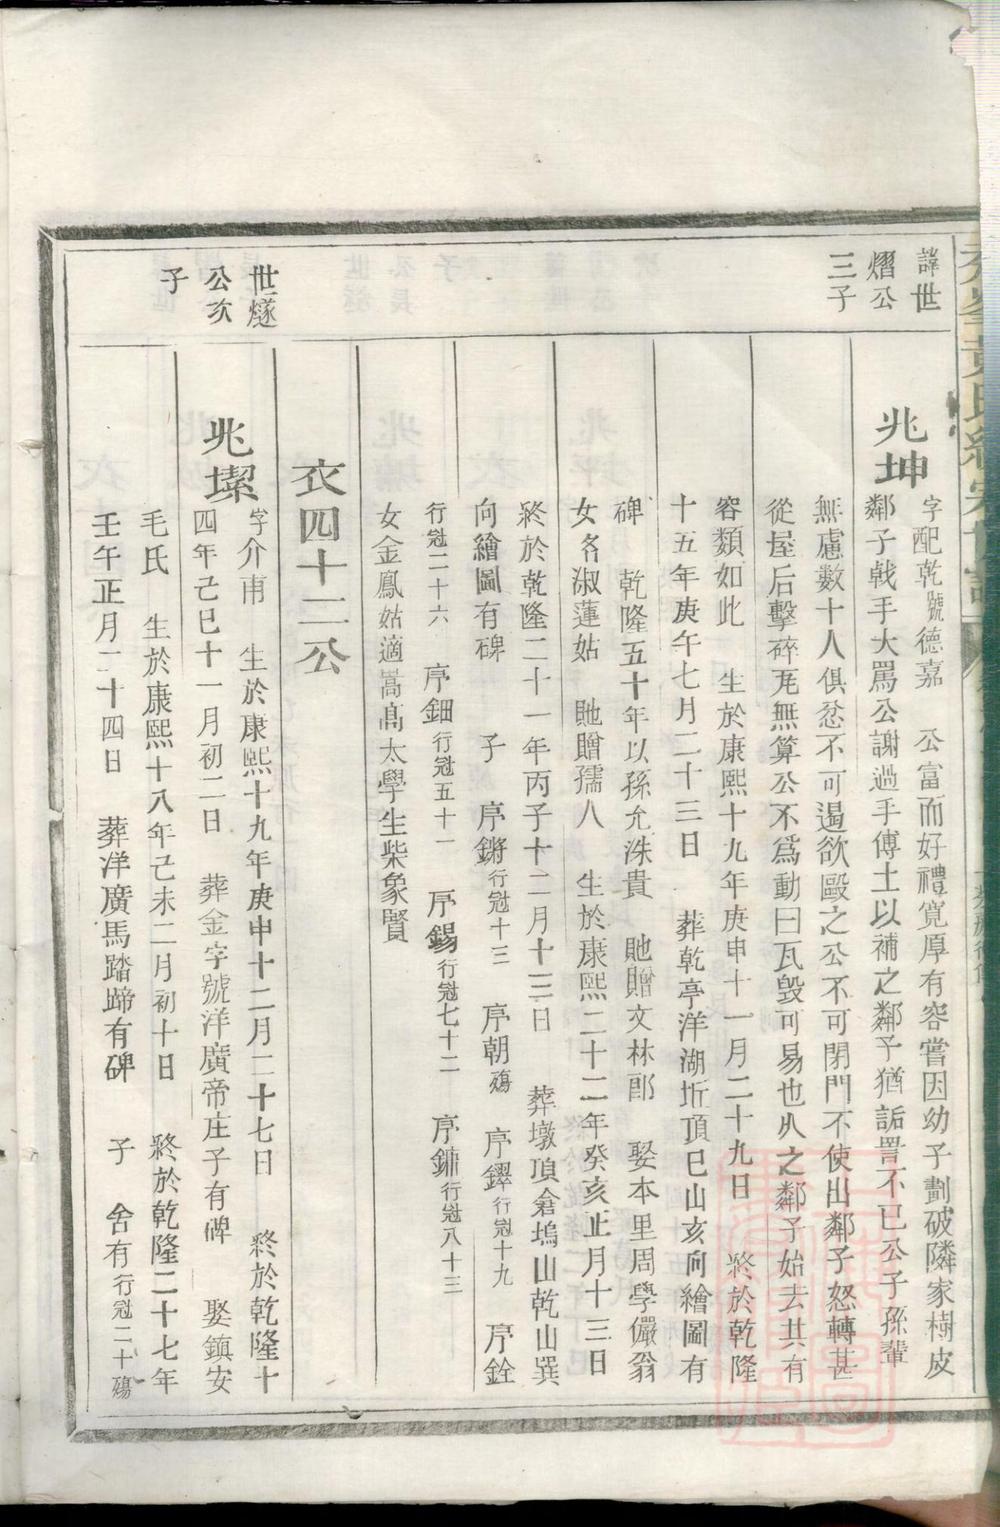 諱世
熠公
三子
兆坤
字配乾號德嘉　公富而好禮寬厚有容嘗因幼子劃破隣家樹皮
鄰子戟手大罵公謝過手傅土以補之鄰子猶詬詈不已公子孫輩
無慮數十人俱忿不可遏欲毆之公不可閉門不使出鄰子怒轉甚
從屋后擊碎瓦無算公不為動曰瓦毀可易也久之鄰子始去其有
容類如此　生於康熙十九年庚申十一月二十九日　終於乾隆
十五年庚午七月二十三日　葬乾亭洋湖坵頂巳山亥向繪圖有
碑　乾隆五十年以孫允洙貴　貤贈文林郎　娶本里周學儼翁
女名淑蓮姑　貤贈孺人　生於康熙二十二年癸亥正月十三日
終於乾隆二十一年丙子十二月十三日　葬墩頂倉塢山乾山巽
向繪圖有碑　子　序鏘行冠十三　序朝殤　序鐸行冠十九　序銓
行冠二十六　序鈿行冠五十一　序錫行冠七十二　序鏞行冠八十三
女金鳳姑適嵩高太學生柴象賢
衣四十二公
世燧
公次
子
兆㙮
字介甫　生於康熙十九年庚申十二月二十七日　終於乾隆十
四年己巳十一月初二日　葬金字號洋廣帝庄子有碑　娶鎮安
毛氏　生於康熙十八年己未二月初十日　終於乾隆二十七年
壬午正月二十四日　葬洋廣馬踏蹄有碑　子　舍有行冠二十殤